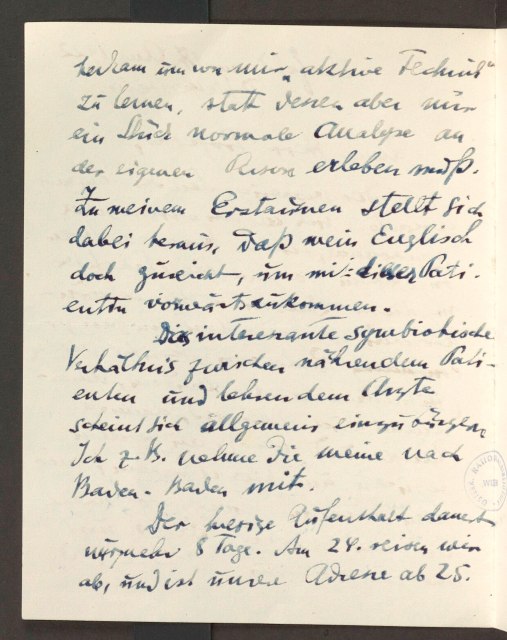 herkam um von mir „aktive Technik"
zu lernen, statt dessen aber nur
ein Stück normale Analyse an
der eigenen Person erleben muß.
Zu meinem Erstaunen stellt sich
dabei heraus, daß mein Englisch
doch zureicht, um mit dieser Pati-
entin vorwärtszukommen.
Dies interessante symbiotische
Verhältnis zwischen nährendem Pati-
enten und lehrendem Arzte
scheint sich allgemein einzubürgern
Ich z. B. nehme die meine nach
Baden-Baden mit.
Der hiesige Aufenthalt dauert
nurmehr 8 Tage. Am 24. reisen wir
ab, und ist unsere Adresse ab 25.
WIEN